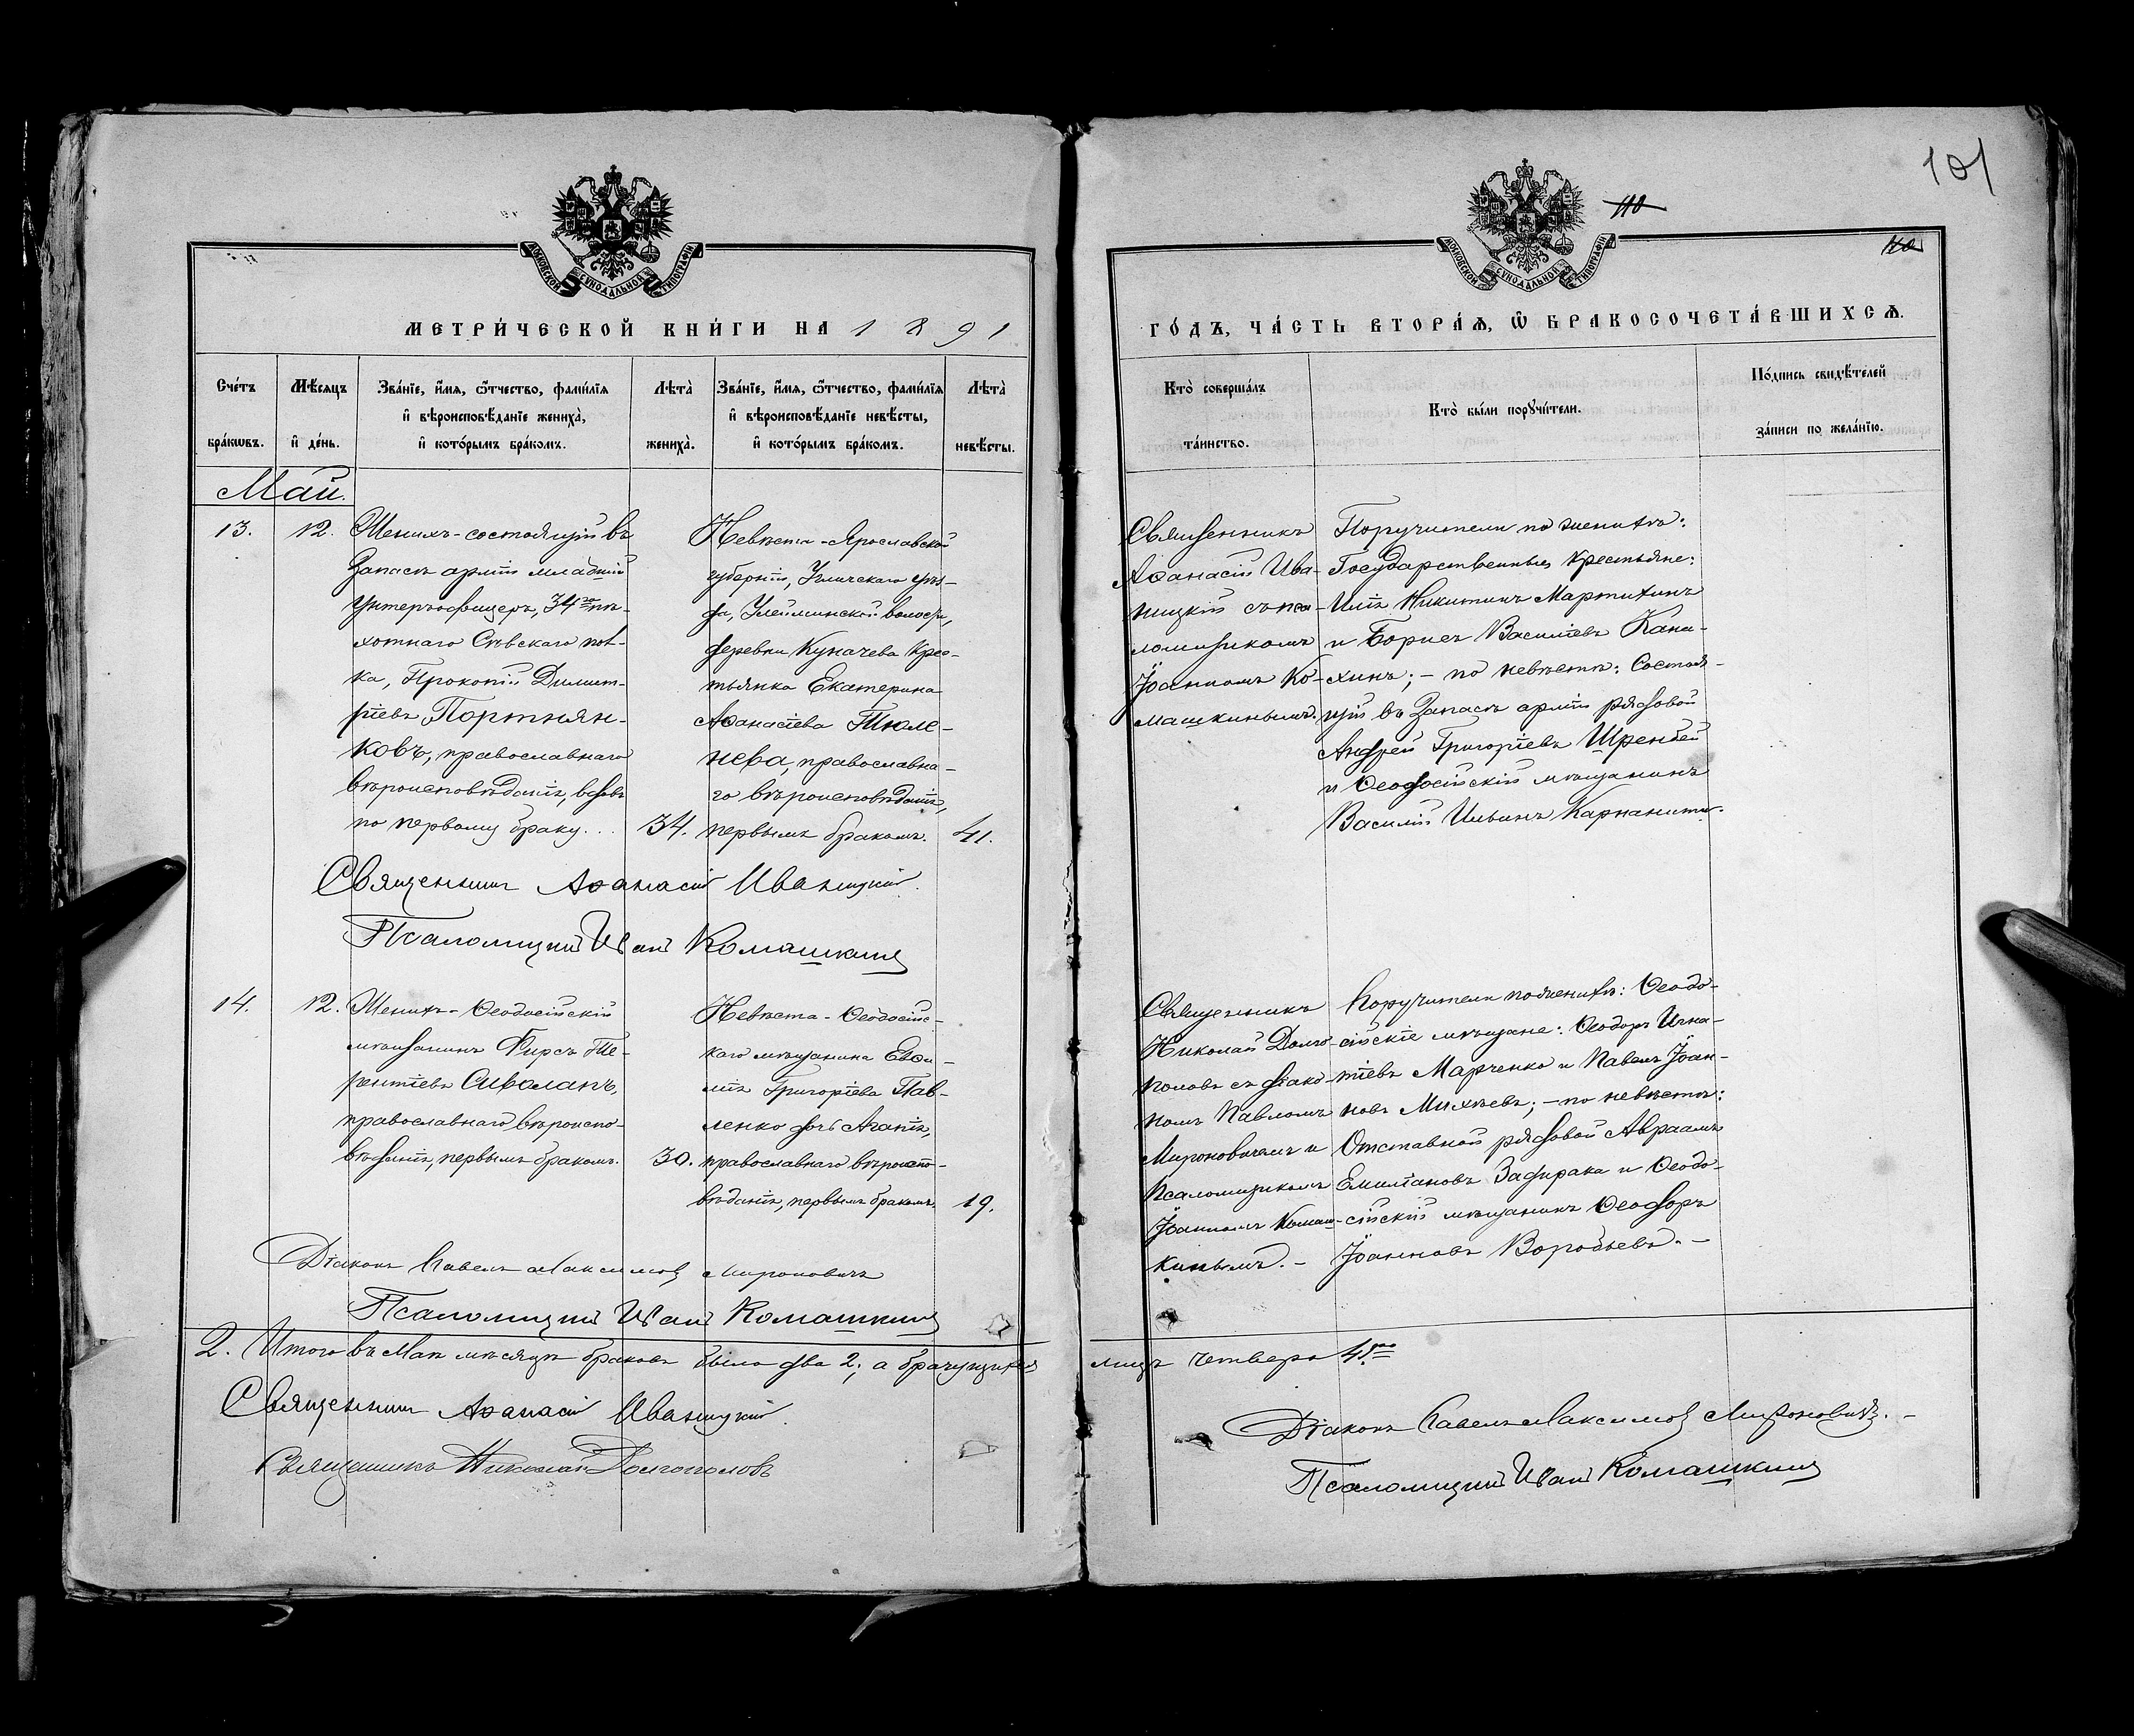 101
110
110
МОСКОВСКОЙ СѴНОДАЛЬНОЙ ТИПОГРАФІИ
МОСКОВСКОЙ СѴНОДАЛЬНОЙ ТИПОГРАФІИ
МЕТРИ́ЧЕСКОЙ КНИ́ГИ НА 1891
ГО́ДЪ, ЧА́СТЬ ВТОРА́Ѧ, Ѿ БРАКОСОЧЕТА́ВШИХСѦ.
Сче́тъ бра́кѡвъ.
Мѣ́сѧцъ и҆ де́нь.
Зва́нїе, и҆́мѧ, ѻ҆́тчество, фами́лїѧ
и҆ вѣроисповѣ́данїе женихà,
и҆ кото́рымъ бра́комъ.
Лѣ́та женихà.
Зва́нїе, и҆́мѧ, ѻ҆́тчество, фами́лїѧ
и҆ вѣроисповѣ́данїе невѣ́сты,
и҆ кото́рымъ бра́комъ.
Лѣ́та невѣ́сты.
Кто̀ соверша́лъ та́инство.
Кто̀ бы́ли порꙋчи́тели.
По́дпись свидѣ́телей за́писи по жела́нїю.
Май.
13.
12.
Женихъ - состоящій въ
Запасѣ арміи младшій
унтеръ-офицеръ, 34го пѣ-
хотнаго Сѣвскаго пол-
ка, Прокопій Димит-
ріевъ Портнян-
ковъ, православнаго
вѣроисповѣданія, вдовъ
по первому браку...
34.
Невѣста - Ярославской
губерніи, Угличскаго уѣз-
да, Улейминской волости,
деревни Куначева крес-
тьянка Екатерина
Аѳанасіева Тюле-
нева, православна-
го вѣроисповѣданія,
первымъ бракомъ.
41.
Священникъ
Аѳанасій Ива-
ницкій съ пса-
ломщикомъ
Іоанномъ Ко-
машкинымъ.
Поручители по женихѣ:
Государственные крестьяне:
Илія Никитинъ Мартихинъ
и Борисъ Василіевъ Кана-
хинъ; - по невѣстѣ: Состоя-
щій въ Запасѣ арміи рядовой
Андрей Григоріевъ Шрендей
и Ѳеодосійскій мѣщанинъ
Василій Ильинъ
Священникъ Аѳанасій Иваницкій.
Псаломщикъ Иванъ Комашкинъ
14.
12.
Женихъ - Ѳеодосійскій
мѣщанинъ Фирсъ Те-
рентіевъ
православнаго вѣроиспо-
вѣданія, первымъ бракомъ.
30.
Невѣста - Ѳеодосійс-
каго мѣщанина Евѳи-
мія Григоріева Пав-
ленко дочь Агапія,
православнаго вѣроиспо-
вѣданія, первымъ бракомъ.
19.
Священникъ
Николай Долго-
половъ съ діако-
номъ Павломъ
Мироновичемъ и
псаломщикомъ
Іоанномъ Комаш-
кинымъ. -
Поручители по женихѣ: Ѳеодо-
сійскіе мѣщане: Ѳеодоръ Игна-
тіевъ Марченко и Павелъ Іоан-
новъ Михѣевъ; - по невѣстѣ:
Отставной рядовой Авраамъ
Емиліановъ Задирака и Ѳеодо-
сійскій мѣщанинъ Ѳеодоръ
Іоанновъ Воробьевъ. -
Діаконъ Павелъ Максимовъ Мироновичъ
Псаломщикъ Иванъ Комашкинъ
2. Итого въ Маѣ мѣсяцѣ браковъ было два 2; а брачущихся
лицъ четверо 4ро
Священникъ Аѳанасій Иваницкій.
Священникъ Николай Долгополовъ
Діаконъ Павелъ Максимовъ Мироновичъ. -
Псаломщикъ Иванъ Комашкинъ